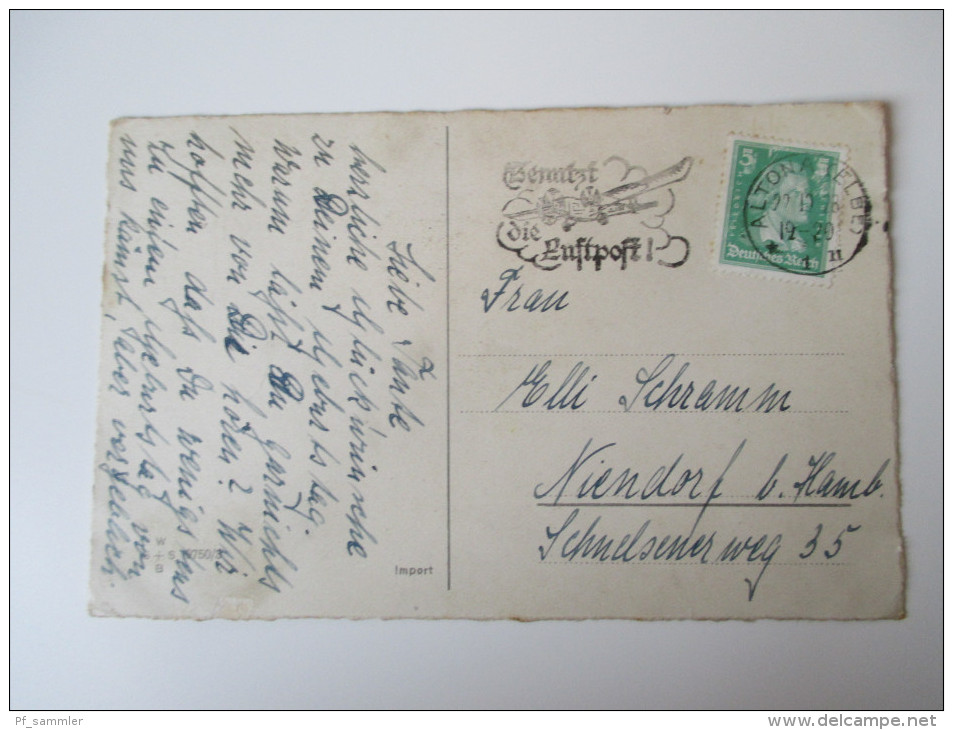 Benutzt
die
Luftpost!
5
Deutsches Reich
ALTONA (ELBE)
19-20
Frau
Elli Schramm
Niendorf b. Hamb.
Schnelsenerweg 35
Liebe Tante
herzliche Glückwünsche
zu Deinem Geburtstag.
Warum läßt Du garnichts
mehr von Dir hören? Wir
hoffen daß Du wenigstens
zu eurem Geburtstag von
uns kümst, aber vergeblich.
W
S
B
Import
Pf_sammler
www.delcampe.net